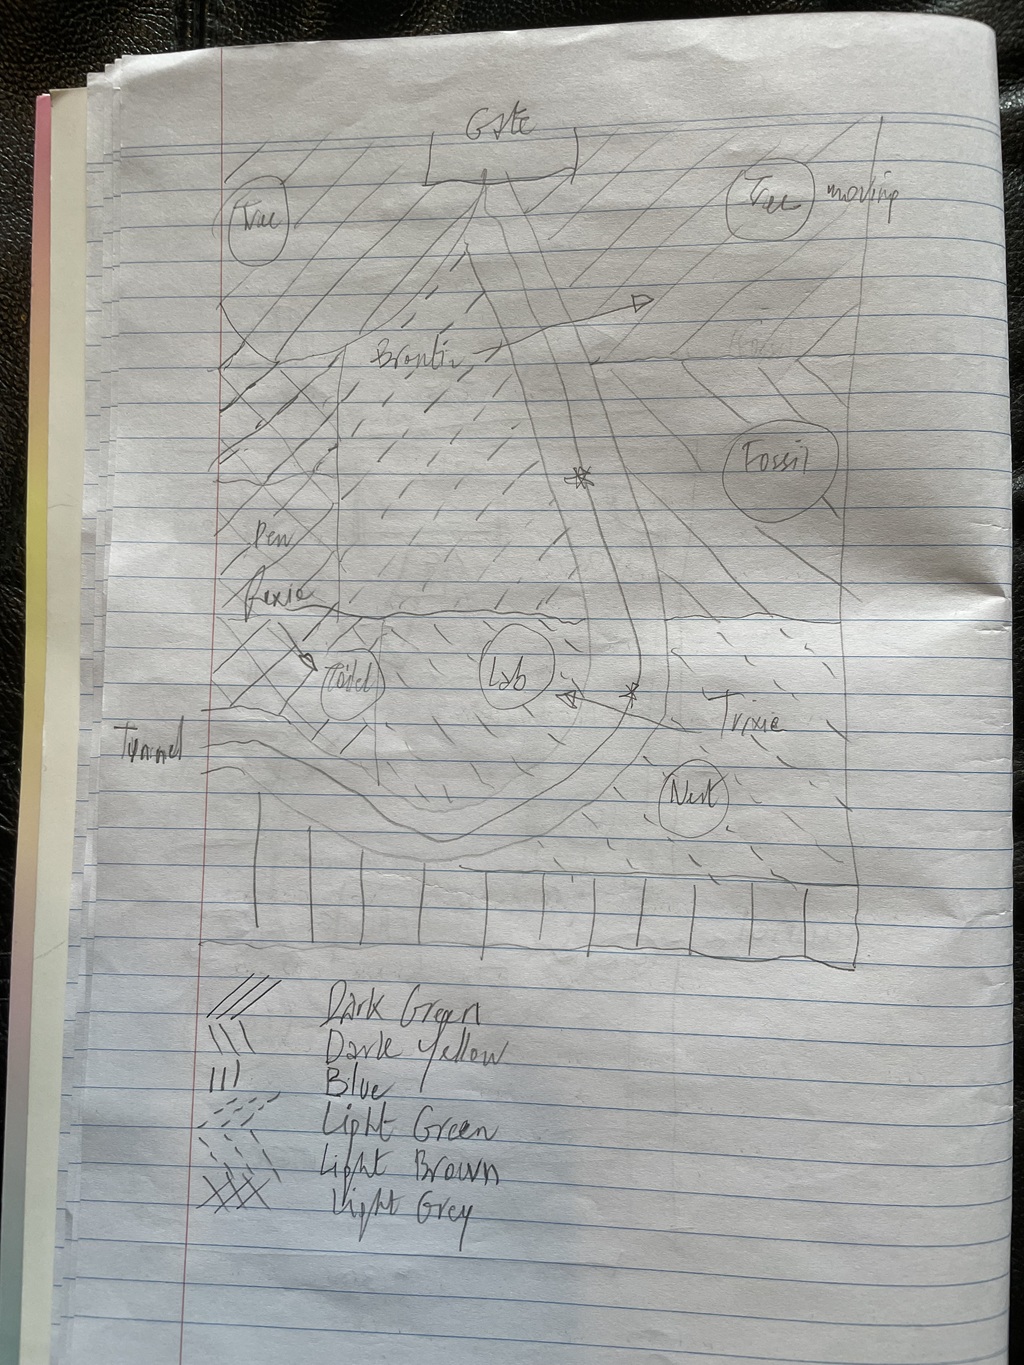 Gate
Tree
Tree moving
Brontin
Fossil
Pen
Rexie
Toilet
Lab
Trixie
Tunnel
Nest
Dark Green
Dark Yellow
Blue
Light Green
Light Brown
Light Grey